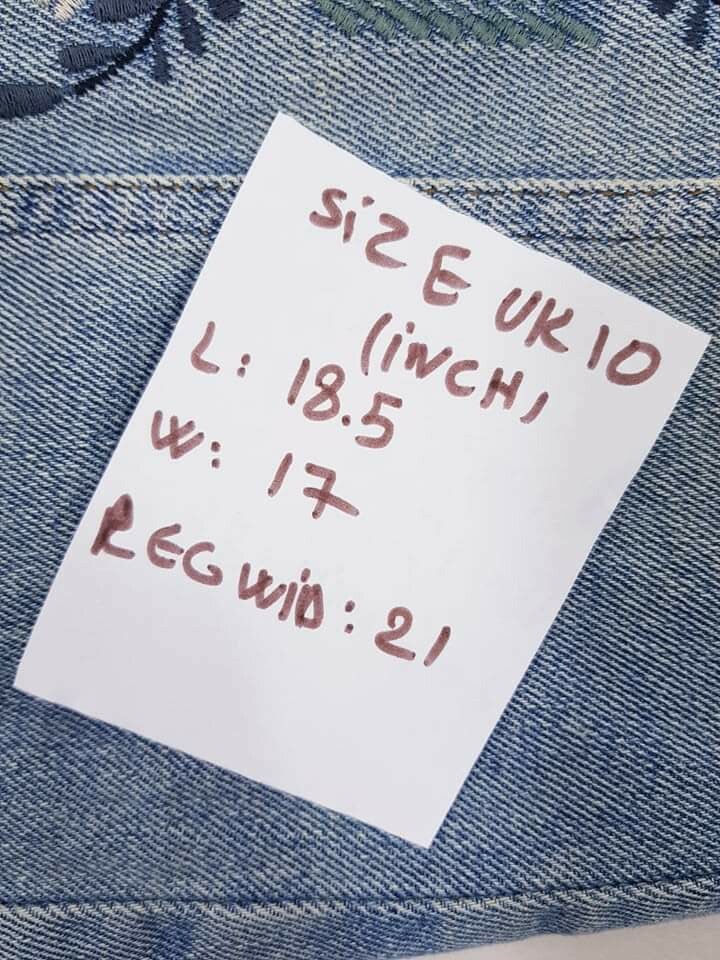 SiZE UK 10
(iNCH)
L: 18.5
W: 17
REG WiD: 21